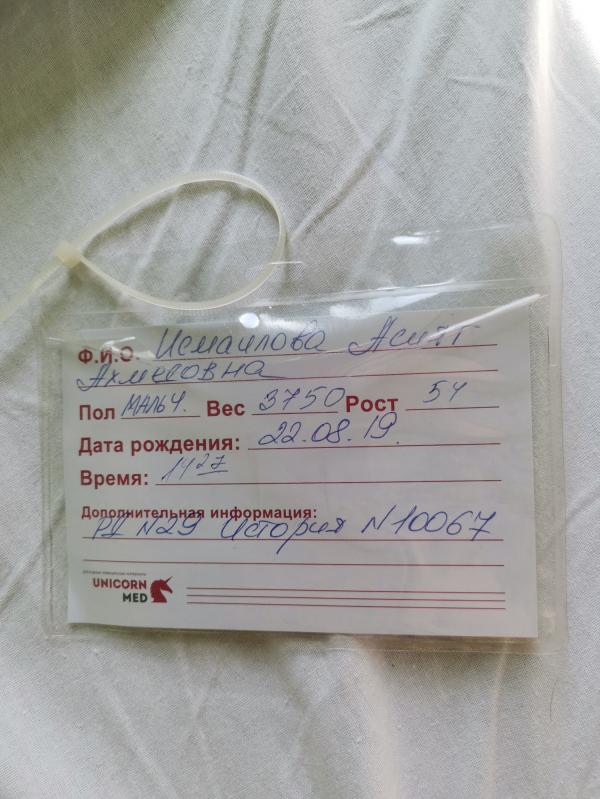 Ф.И.О. Исмаилова Асият
Ахмедовна
Пол МАЛЬЧ. Вес 3750 Рост 54
Дата рождения: 22.08.19.
Время: 14 27
Дополнительная информация:
N29 История N10067
UNICORN
MED